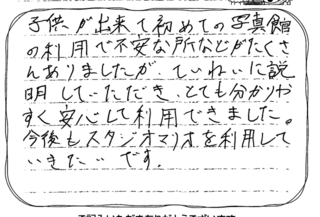 子供が出来て初めての写真館
の利用で不安な所などがたくさ
んありましたが、ていねいに説
明していただき、とても分かりや
すく安心して利用できました。
今後もスタジオマリオを利用して
いきたいです。